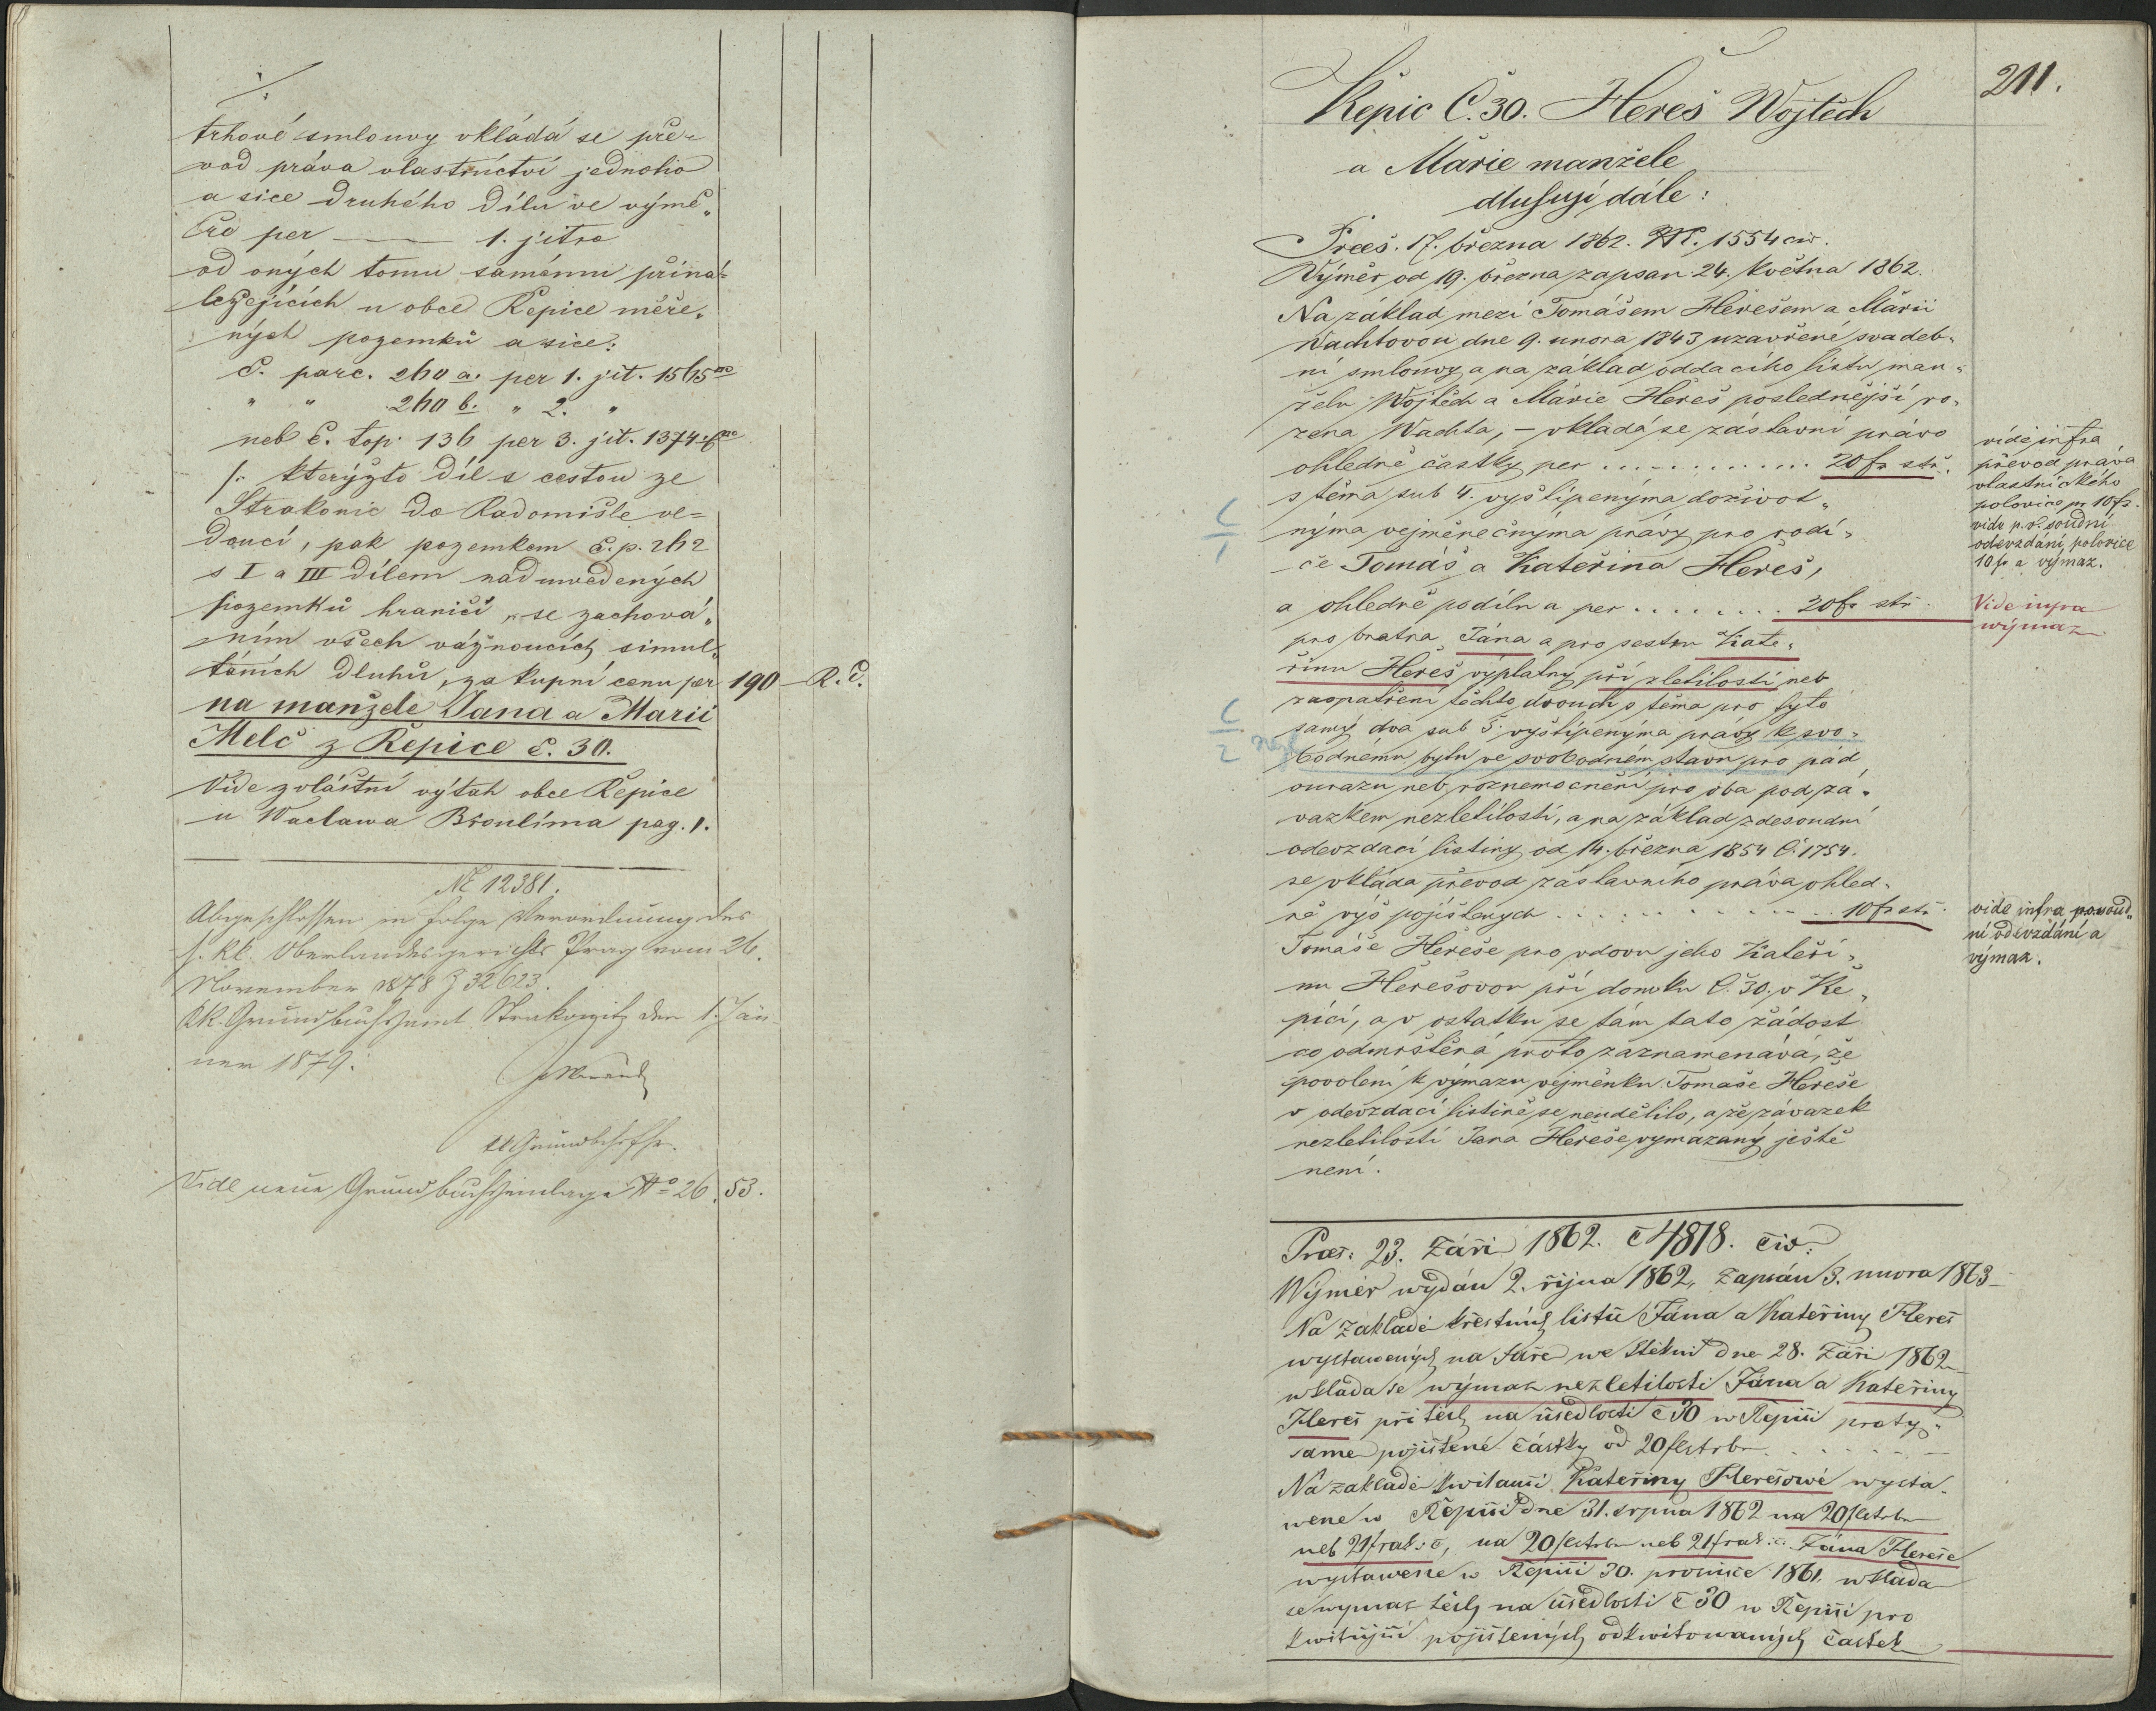 trhové smlouvy vkládá se pře-
vod práva vlastnictví jednoho
a sice druhého dílu ve výmě„
ře per — 1. jitra
od oných tomu samému přiná-
ležejících u obce Řepice měře„
ných pozemků a sice:
č. parc. 260 a. per 1. jit. 1565
" " 260 b. " 2. "
neb č. top. 136 per 3. jit. 1374
/: kterýžto díl s cestou ze
Strakonic do Radomišle ve=
doucí, pak pozemkem č. p. 262
s I a III dílem nad uvedených
pozemků hraničí, se zachová„
ním všech váznoucích simul„
táních dluhů, za kupní cenu per 190 — R. č.
na manžele Jana a Marii
Melč z Řepice č. 30.
Vide zvláštní výtah obce Řepice
u Waclawa Broulíma pag. 1.
NE 12381.
Abgeschlossen in Folge Verordnung des
h. kk. Oberlandesgerichts Prag vom 26.
November 1878 Z 32623.
kk. Grundbuchsamt Strakonitz den 1. Jän
ner 1879.
kk Grundbchsfhr.
Vide neue Grundbuchseinlage No 26, 53.
211.
Řepic Č. 30. Hereš Wojtěch
a Márie manžele
dluhují dále:
Praes. 17. března 1862. N. 1554 civ.
Výměr od 19. března zapsan 24. května 1862.
Na základ mezi Tomášem Herešem a Márii
Wachtovou dne 9. unora 1843 uzavřené svadeb„
ní smlouvy a na základ oddacího listu man„
želu Wojtěch a Márie Hereš poslednější ro„
zena Wachta, – vkládá se zástavní právo
ohledně častky per . . . . . . 20 fr stř.
s těma sub 4. vyštípenýma doživot„
nýma vejměnečnýma právy pro rodi„
če Tomáš a Kateřina Hereš,
a ohledně podílu a per . . . . . . 20 fr stř.
pro bratra Jána a pro sestru Kate„
řinu Hereš výplatný při zletilosti neb
zaopatření těchto dvouch s těma pro tyto
samý dva sub 5. vyštípenýma právy k svo„
bodnému bytu ve svobodném stavu pro pád
ourazu neb roznemocnění pro oba pod zá„
vazkem nezletilosti, a na základ zdesoudní
odevzdací listiny od 14. března 1854 č. 1754.
se vkláda převod zástavního práva ohled„
ně výš pojištených . . . . . . 10 fr stř.
Tomáše Hereše pro vdovu jeho Kateři„
nu Herešovou při domku Č. 30. v Ře„
pici, a v ostatku se tám tato žádost
co odmrštěná proto zaznamenává, že
povolení k výmazu vejměnku Tomáše Hereše
v odevzdací listině se neudělilo, a že závazek
nezletilosti Jana Hereše vymazaný ještě
není.
vide infra
převod práva
vlastnického
polovice pr 10 fr.
vide p. r. soudní
odevzdání polovice
10 fr a výmaz.
Vide infra
wýmaz
vide infra p. soud„
ní odevzdání a
výmaz.
Praes: 23. Září 1862. č 4818. civ.
Wýměr wydán 2. října 1862, zapsán 3. unora 1863
Na základě křestních listů Jána a Kateřiny Hereš
wystawených na faře we Štěkni dne 28. Září 1862
wkláda se wýmaz nezletilosti Jána a Kateřiny
Hereš při těch na usedlosti č 30 w Řepici pro ty„
same pojištené částky od 20 fl strb . . . . . .
Na základě kwitanci Kateřiny Herešowé wysta„
wené w Řepici dne 31. srpna 1862 na 20 fl strb
neb 21 fr ak. č, na 20 fl strb neb 21 fr ak. č. Jána Hereše
wystawené w Řepici 30. prosince 1861. wkláda
se wymaz těch na usedlosti č 30 w Řepici pro
kwitující pojištených odkwitowaných částek